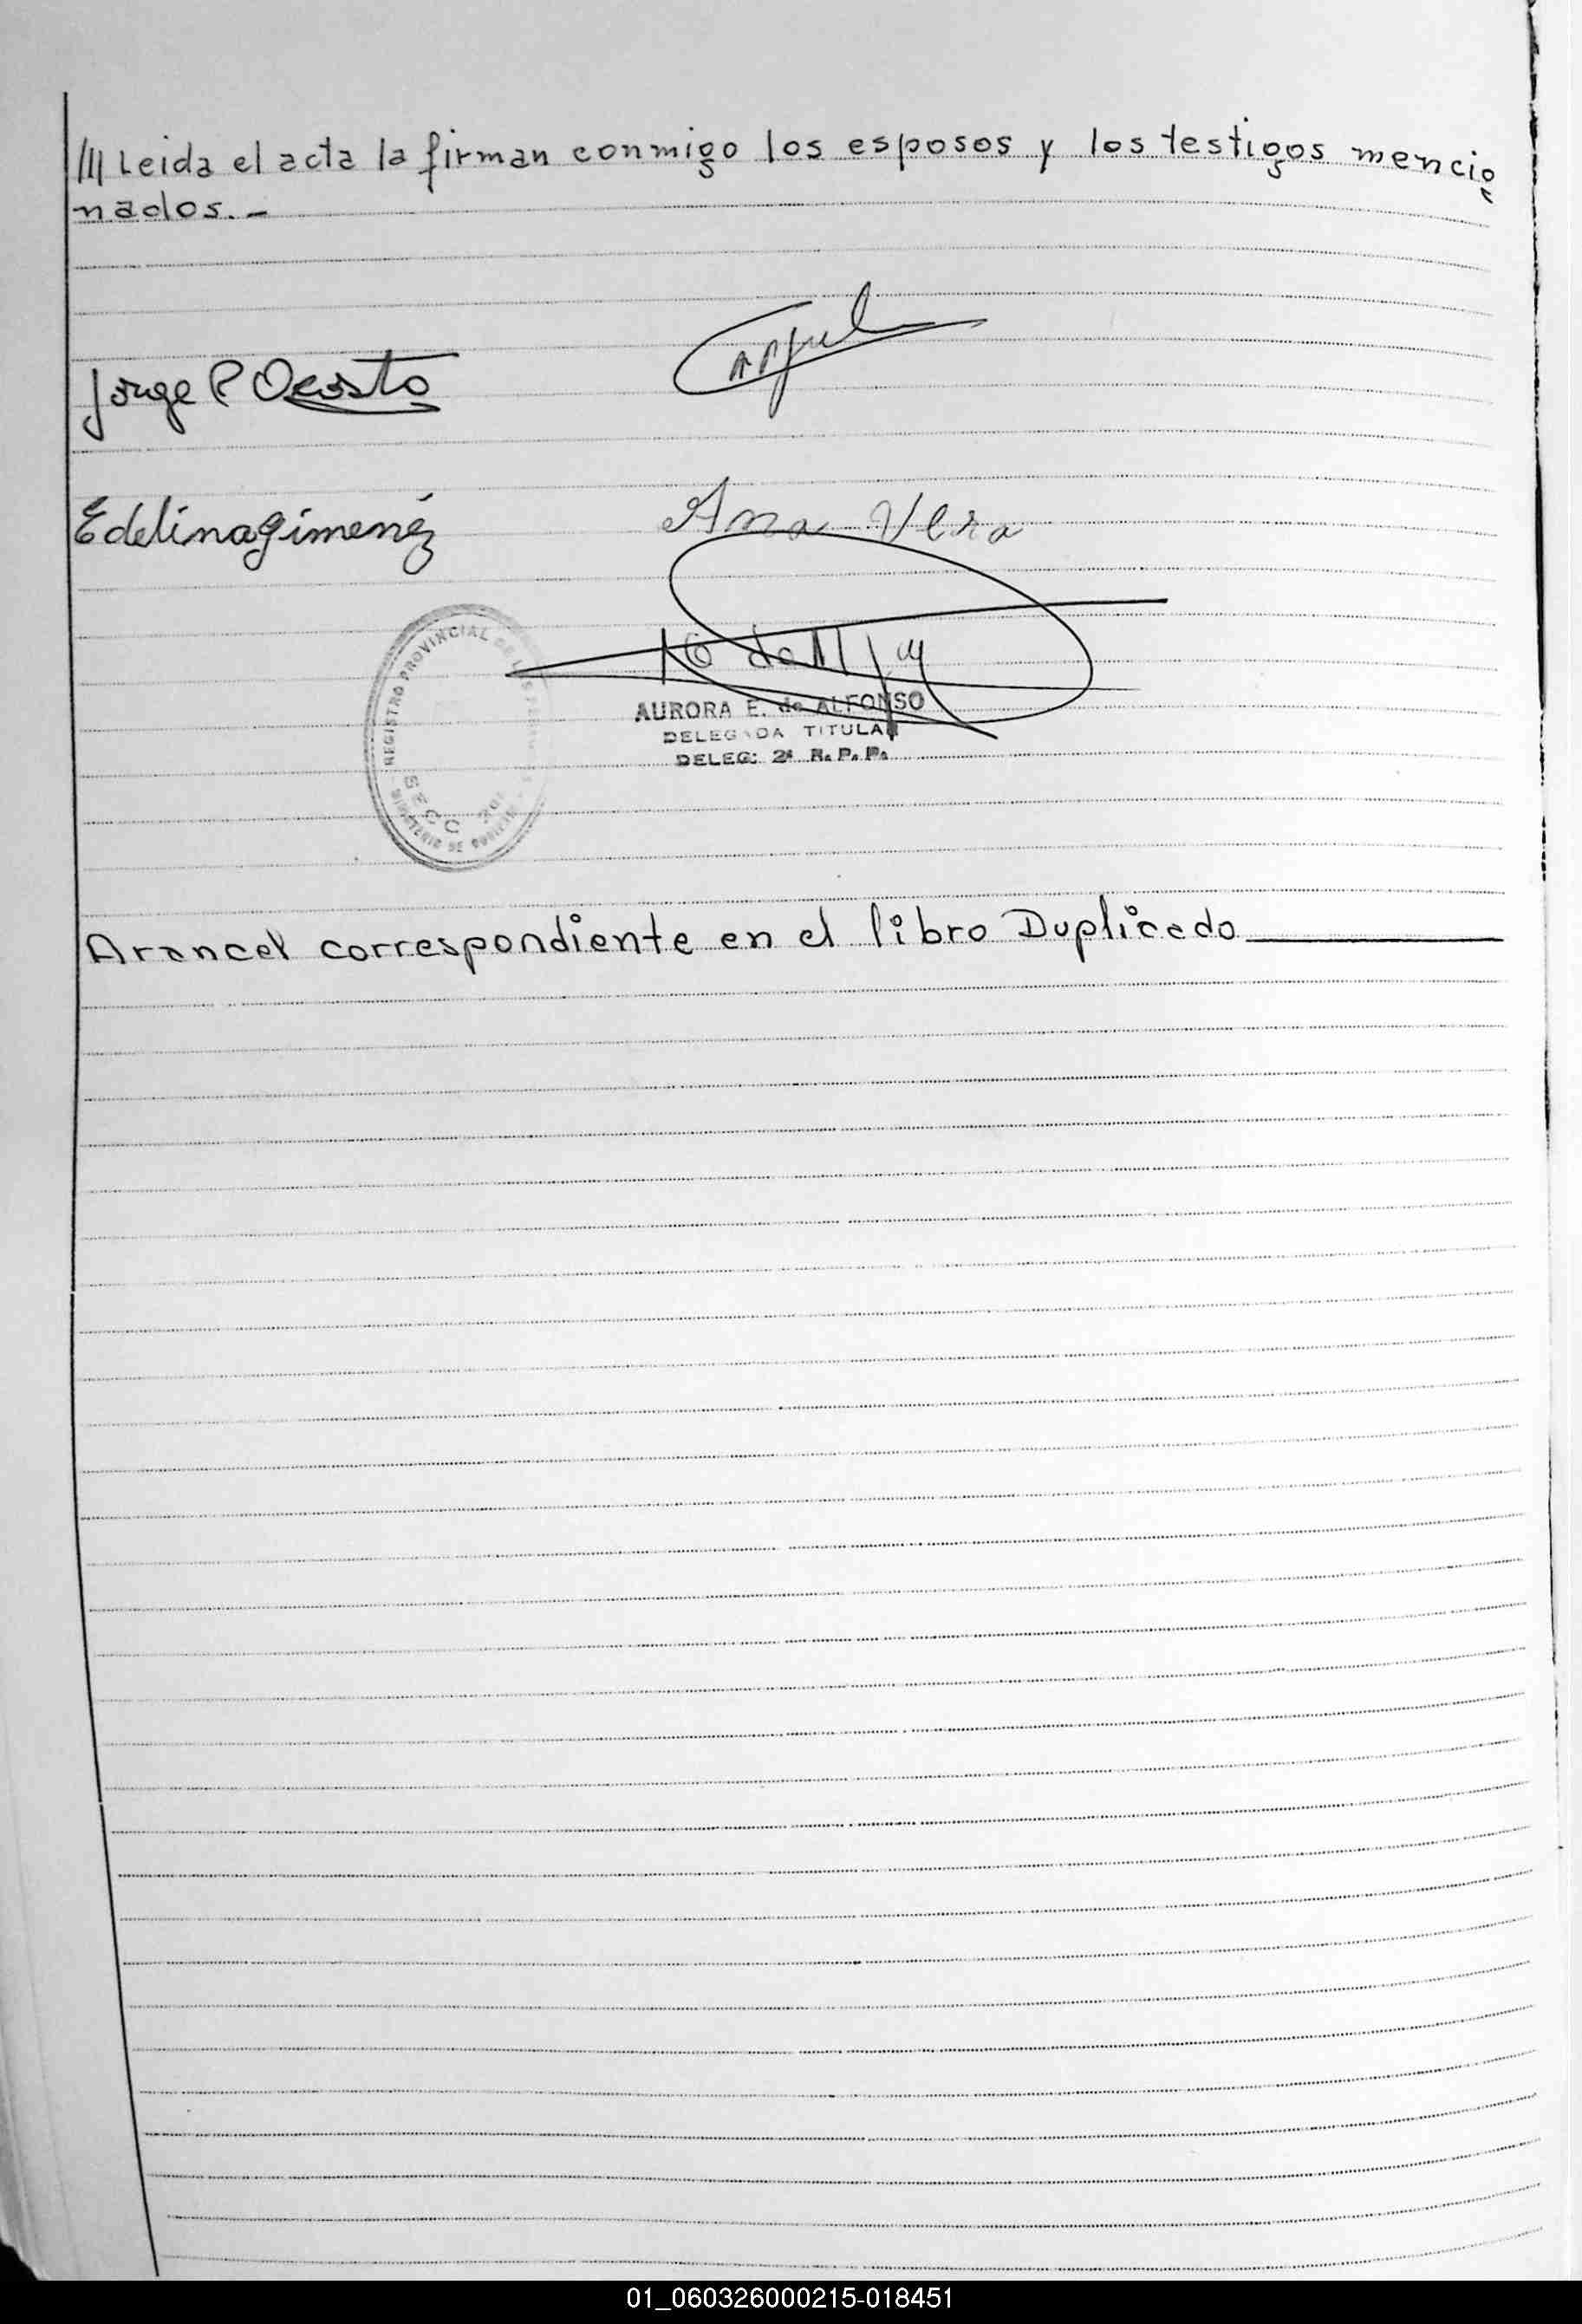 /// Leida el acta la firman conmigo los esposos y los testigos mencio
nados.-
Jorge P Acosta
Edelina gimenéz
Ana Vera
AURORA E. de ALFONSO
DELEGADA TITULAR
DELEG: 2ª R. P. P.
REGISTRO PROVINCIAL DE LAS
SECC
MINISTERIO DE
Arancel correspondiente en el libro Duplicado
01_060326000215-018451